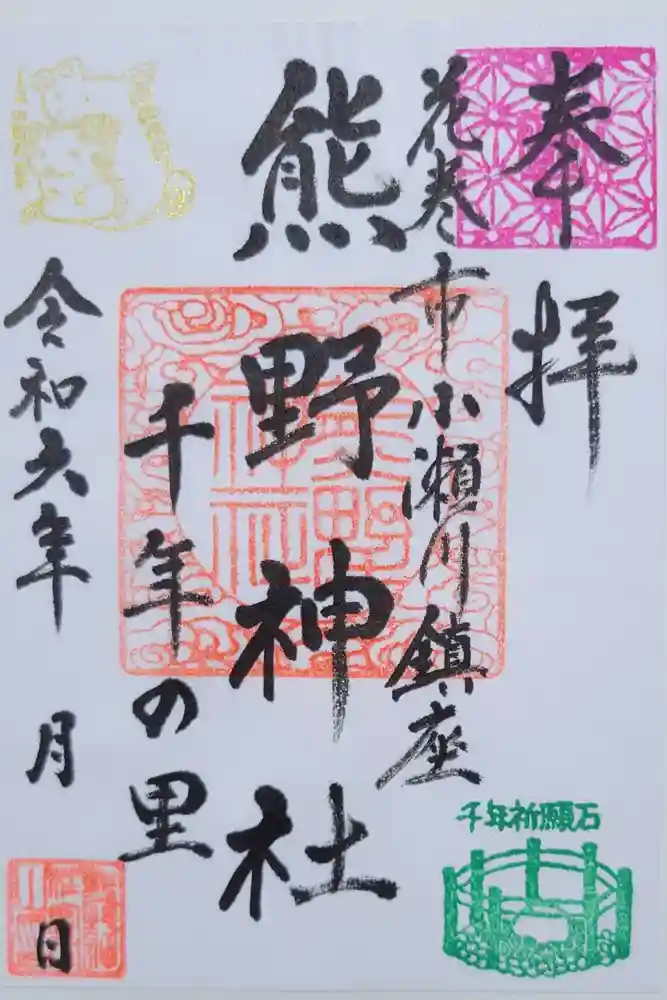 奉拝
花巻市小瀬川鎮座
熊野神社
千年の里
令和六年 月 日
千年祈願石
熊野神社